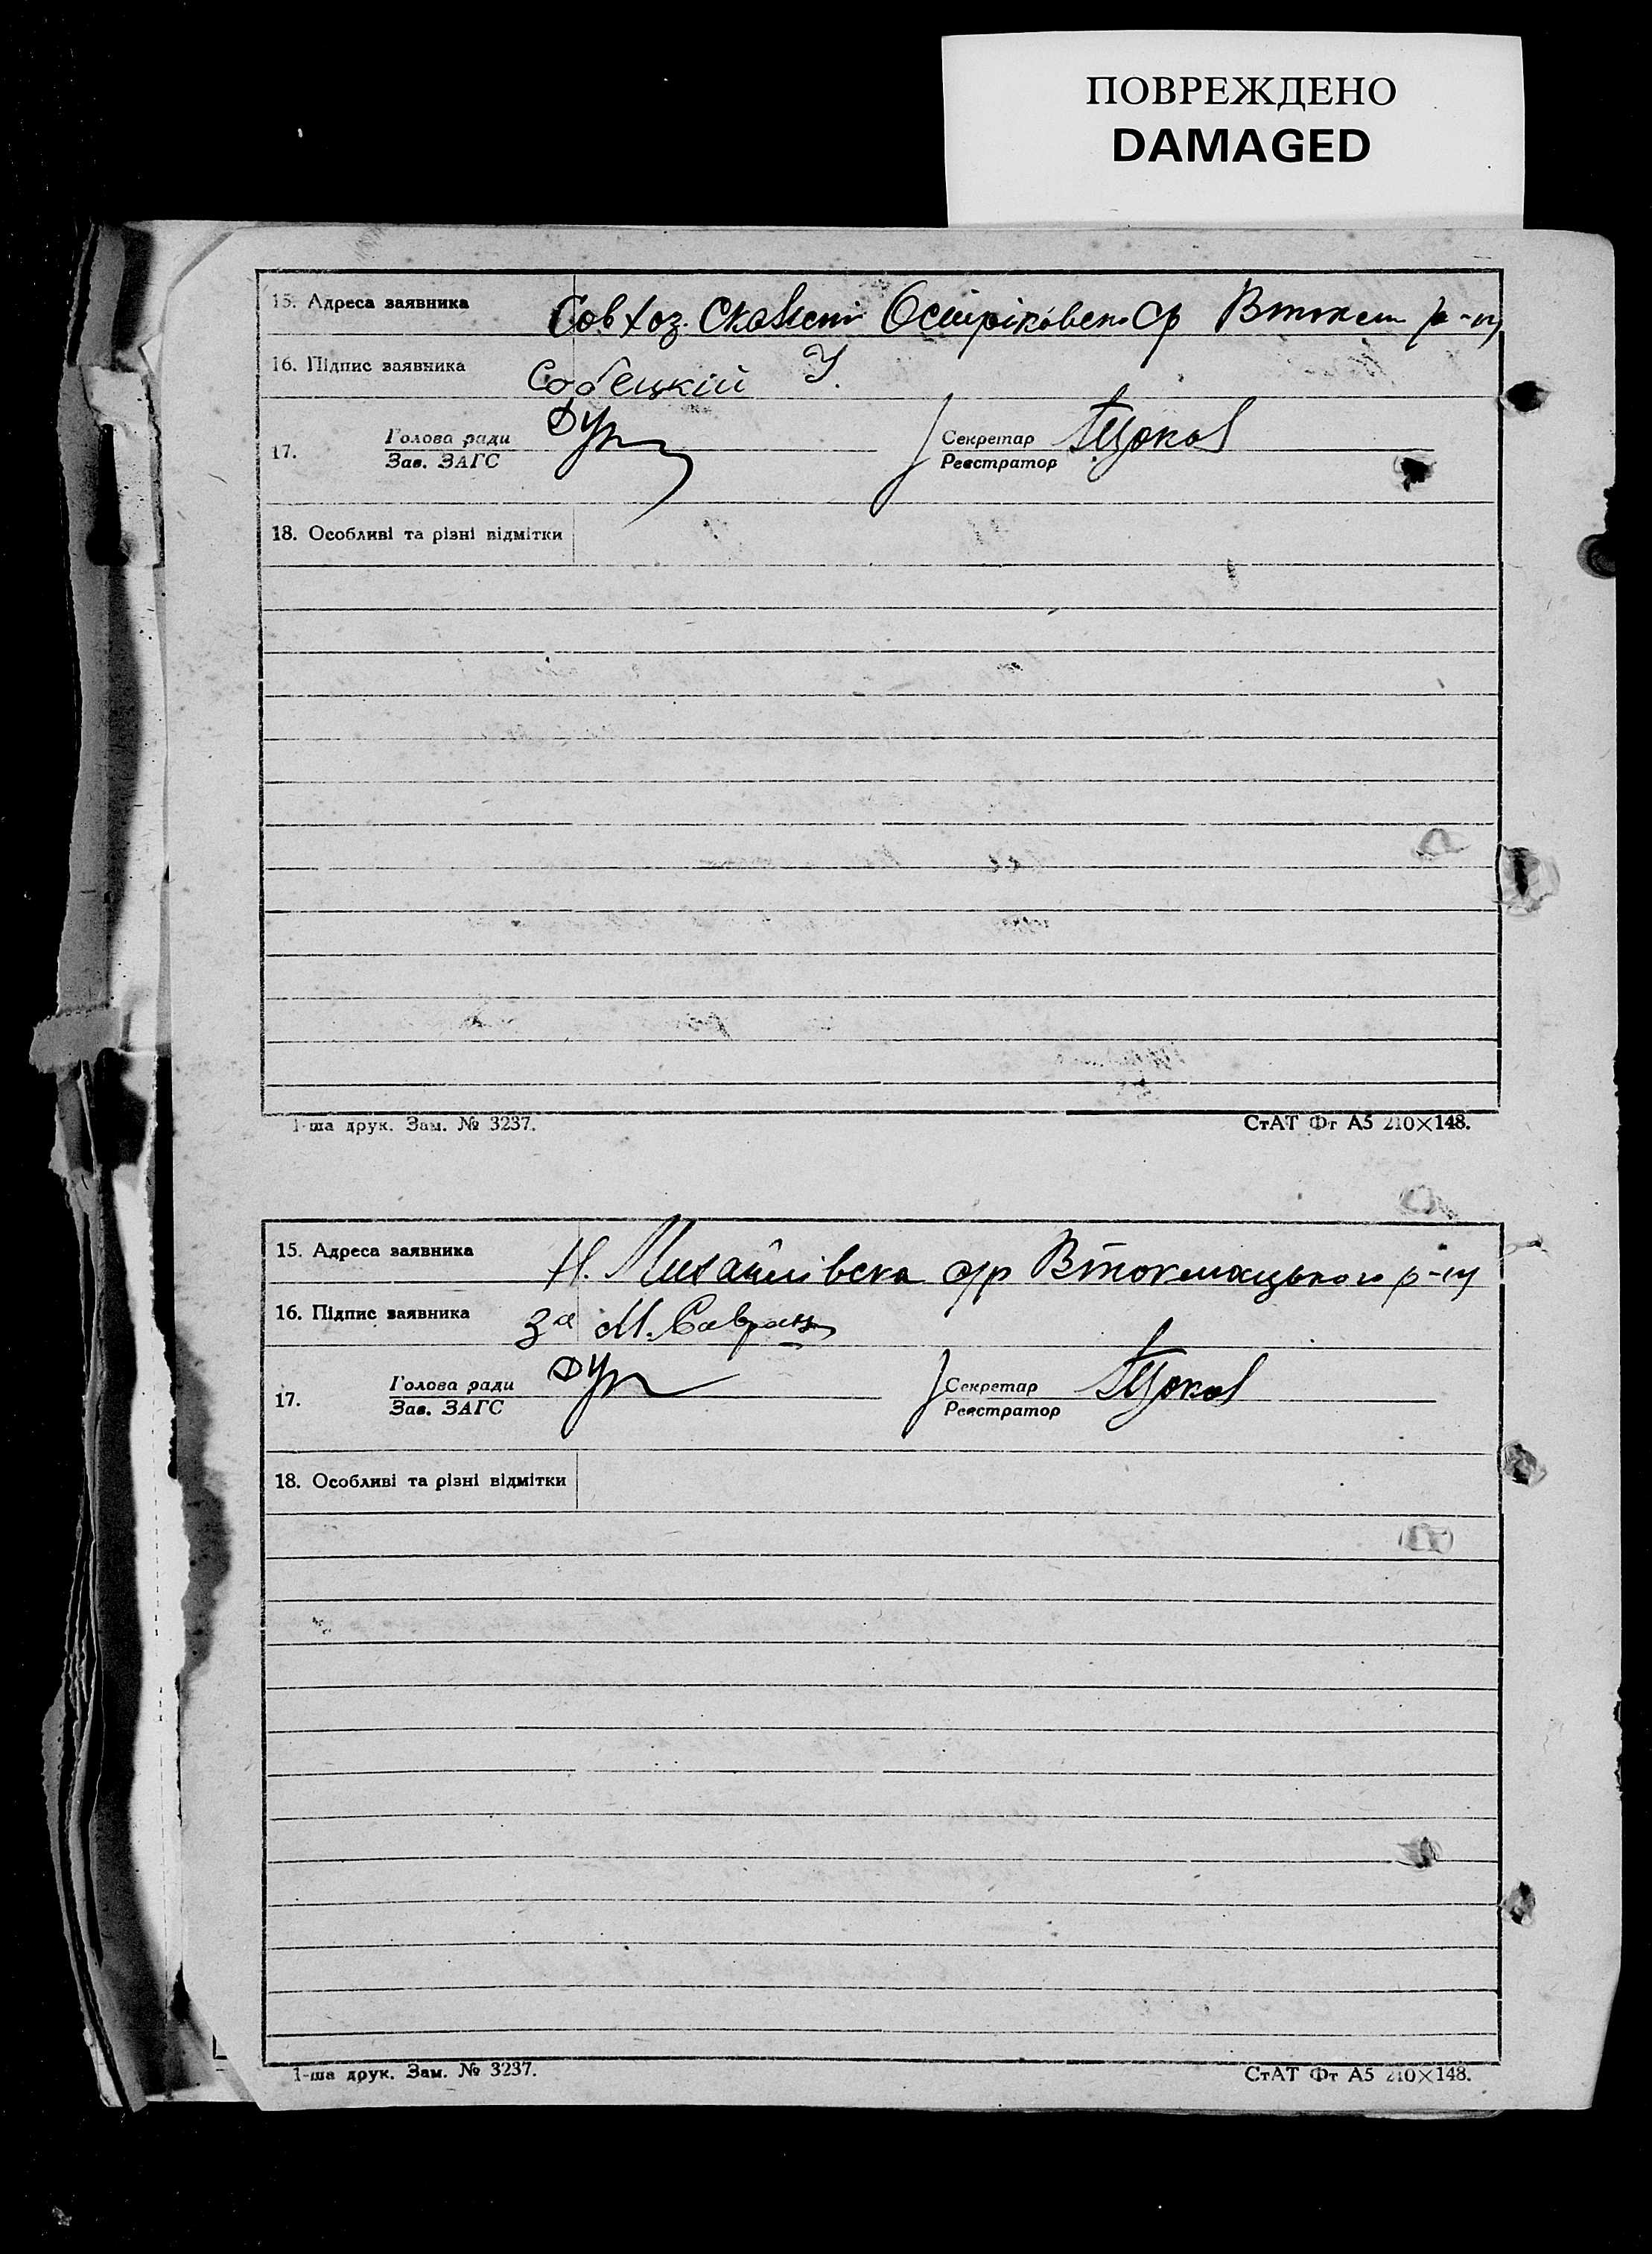 ПОВРЕЖДЕНО
DAMAGED
15. Адреса заявника Совхоз Осипріковск. Ср р-ну
16. Підпис заявника Собецкій У.
17. Голова ради Секретар
Зав. ЗАГС Реєстратор
18. Особливі та різні відмітки
1-ша друк. Зам. № 3237. СтАТ Фт А5 210×148.
15. Адреса заявника Н. Михайлівска с/р Втокмацького р-ну
16. Підпис заявника За М.
17. Голова ради Секретар
Зав. ЗАГС Реєстратор
18. Особливі та різні відмітки
1-ша друк. Зам. № 3237. СтАТ Фт А5 210×148.